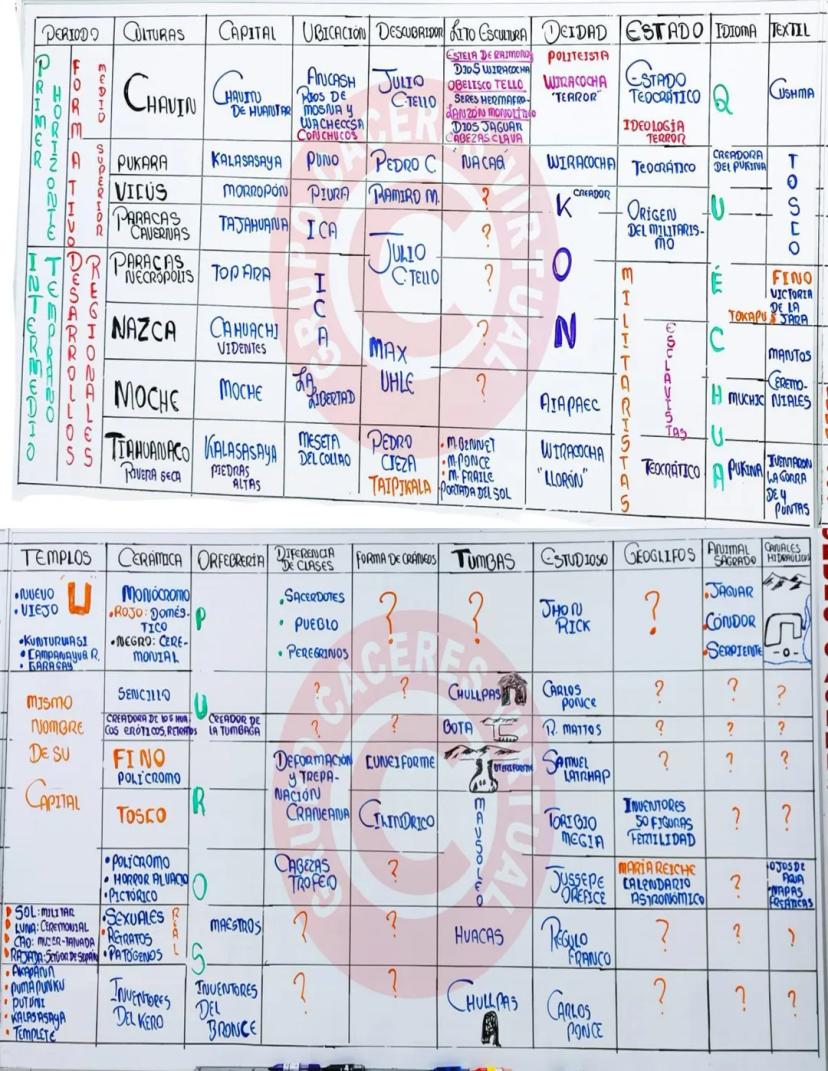 PERIODO CULTURAS CAPITAL UBICACIÓN DESCUBRIDOR LITO ESCULTURA DEIDAD ESTADO IDIOMA TEXTIL
PRIMER HORIZONTE
FORMATIVO
MEDIO
CHAVIN
CHAVIN
DE HUANTAR
ANCASH
RIOS DE
MOSNA Y
WACHECCSA
CONCHUCOS
JULIO
C.TELLO
ESTELA DE RAIMONDI
DIOS WIRACOCHA
OBELISCO TELLO
SERES HERMAFRO-
LANZÓN MONOLITICO
DIOS JAGUAR
CABEZAS CLAVA
POLITEISTA
WIRACOCHA
"TERROR"
ESTADO
TEOCRÁTICO
IDEOLOGÍA
TERROR
QUÉCHUA
CUSHMA
SUPERIOR
PUKARA
KALASASAYA
PUNO
PEDRO C.
"ÑACAQ"
WIRACOCHA
TEOCRÁTICO
CREADORA
DEL PUKINA
TOSCO
VICÚS
MORROPÓN
PIURA
RAMIRO M.
?
KON
CREADOR
ORIGEN
DEL MILITARIS-
MO
PARACAS
CAVERNAS
TAJAHUANA
ICA
JULIO
C.TELLO
?
INTERMEDIO TEMPRANO
DESARROLLOS REGIONALES
PARACAS
NECRÓPOLIS
TOPARA
ICA
?
MILITARISTAS
FINO
VICTORIA
DE LA
JARA
TOKAPU
NAZCA
CAHUACHI
VIDENTES
MAX
UHLE
?
ESCLAVISTAS
MANTOS
MOCHE
MOCHE
LA
LIBERTAD
?
AIAPAEC
MUCHIC
CEREMO-
NIALES
TIAHUANACO
KALASASAYA
PIEDRAS
ALTAS
MESETA
DEL COLLAO
PEDRO
CIEZA
TAIPIKALA
• M.BENNET
• M.PONCE
• M.FRAILE
PORTADA DEL SOL
WIRACOCHA
"LLORÓN"
TEOCRÁTICO
PUKINA
INVENTARON
LA GORRA
DE 4
PUNTAS
TEMPLOS CERÁMICA ORFEBRERÍA DIFERENCIA DE CLASES FORMA DE CRÁNEOS TUMBAS ESTUDIOSO GEOGLIFOS ANIMAL SAGRADO CANALES HIDRAULICOS
• NUEVO
• VIEJO
U
• KUNTURWASI
• CAMPANAYUQ R.
• GARAGAY
MONÓCROMO
• ROJO: DOMÉS-
TICO
• NEGRO: CERE-
MONIAL
PUROS
• SACERDOTES
• PUEBLO
• PEREGRINOS
?
?
JHON
RICK
?
• JAGUAR
• CÓNDOR
• SERPIENTE
MISMO
NOMBRE
DE SU
CAPITAL
SENCILLO
?
?
CHULLPAS
CARLOS
PONCE
?
?
?
CREADORA DE LOS HUA-
COS ERÓTICOS, RETRATOS
CREADOR DE
LA TUMBAGA
?
?
BOTA
R. MATTOS
?
?
?
FINO
POLICROMO
DEFORMACIÓN
Y TREPA-
NACIÓN
CRANEANA
CUNEIFORME
SAMUEL
?
?
?
TOSCO
CILINDRICO
MAUSOLEO
TORIBIO
MEGIA
INVENTORES
50 FIGURAS
FERTILIDAD
?
?
• POLÍCROMO
• HORROR AL VACIO
• PICTÓRICO
CABEZAS
TROFEO
?
JUSSEPE
OREFICE
MARIA REICHE
CALENDARIO
ASTRONÓMICO
?
• OJOS DE
AGUA
• NAPAS
FREÁTICAS
SOL: MILITAR
LUNA: CEREMONIAL
CAO: MUJER-TATUADA
RAJADA: SEÑOR DE SIPÁN
• SEXUALES
• RETRATOS
• PATÓGENOS
MAESTROS
?
?
HUACAS
REGULO
FRANCO
?
?
?
• AKAPANA
• PUMAPUNKU
• PUTUNI
• KALASASAYA
• TEMPLETE
INVENTORES
DEL KERO
INVENTORES
DEL
BRONCE
?
?
CHULLPAS
CARLOS
PONCE
?
?
?
GRUPO CACERES VIRTUAL
GRUPO CACERES VIRTUAL